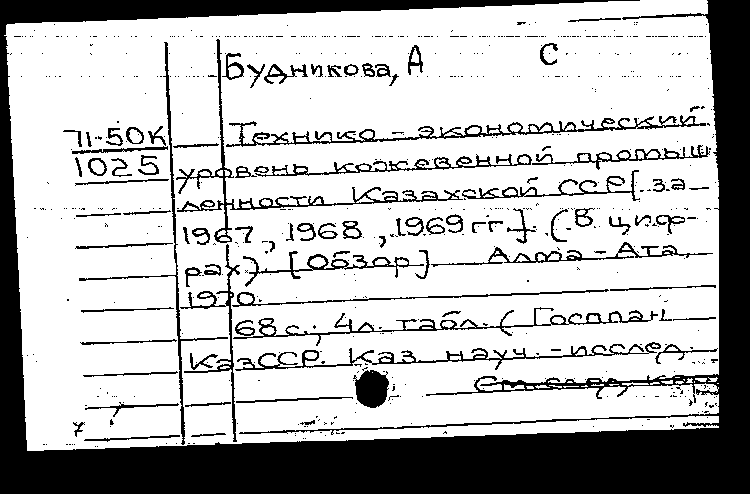 Будникова, А С
71-50К Технико-экономический
1025 уровень кожевенной промыш-
ленности Казахской ССР [за
1967, 1968, 1969 гг.]. (В циф-
рах). [Обзор]. Алма-Ата,
1970.
68 с.; 4л. табл. (Госплан
КазССР. Каз. науч.-исслед.
См след, кар